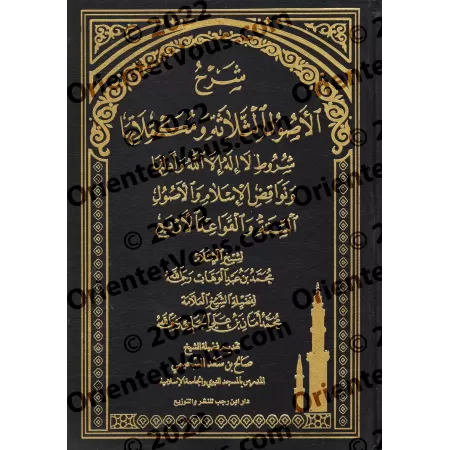 شرح
الأصول الثلاثة ومكملاتها
شروط لا إله إلا الله وأدلتها
ونواقض الإسلام والأصول
الستة والقواعد الأربع
لشيخ الإسلام
محمد بن عبد الوهاب رحمه الله
لفضيلة الشيخ العلامة
محمد أمان بن علي الجامي رحمه الله
تقديم فضيلة الشيخ
صالح بن سعد السحيمي
المدرس بالمسجد النبوي والجامعة الإسلامية
دار ابن رجب للنشر والتوزيع
© 2022
OrientetVous.com